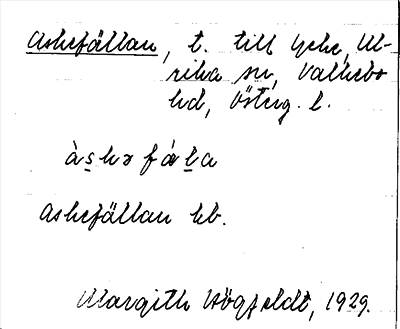 Askefällan, t. till Lycke, Ul-
rika sn, Valkebo
hd, Österg. l.
àskəfála
Askefällan kb.
Margith Högfeldt, 1929.